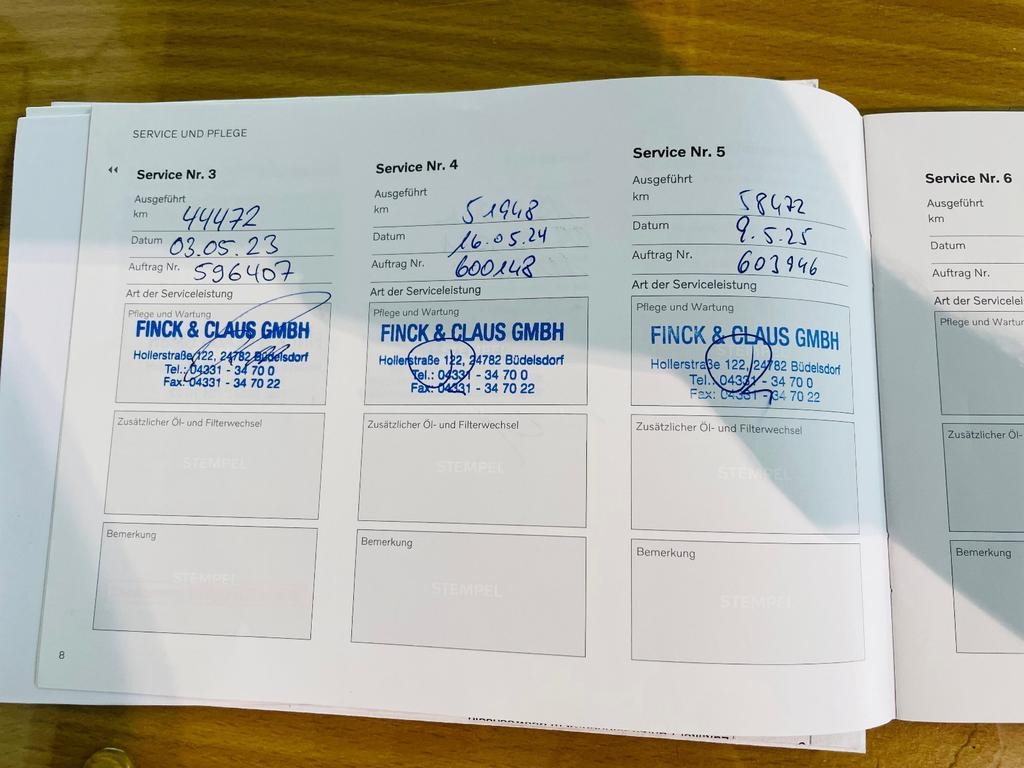 SERVICE UND PFLEGE
Service Nr. 3
Ausgeführt
km 44472
Datum 03.05.23
Auftrag Nr. 596407
Art der Serviceleistung
Pflege und Wartung
FINCK & CLAUS GMBH
Hollerstraße 122, 24782 Büdelsdorf
Tel.: 04331 - 34 70 0
Fax: 04331 - 34 70 22
Zusätzlicher Öl- und Filterwechsel
STEMPEL
Bemerkung
STEMPEL
Service Nr. 4
Ausgeführt
km 51948
Datum 16.05.24
Auftrag Nr. 600148
Art der Serviceleistung
Pflege und Wartung
FINCK & CLAUS GMBH
Hollerstraße 122, 24782 Büdelsdorf
Tel.: 04331 - 34 70 0
Fax: 04331 - 34 70 22
Zusätzlicher Öl- und Filterwechsel
STEMPEL
Bemerkung
STEMPEL
Service Nr. 5
Ausgeführt
km 58472
Datum 9.5.25
Auftrag Nr. 603946
Art der Serviceleistung
Pflege und Wartung
FINCK & CLAUS GMBH
Hollerstraße 122, 24782 Büdelsdorf
Tel.: 04331 - 34 70 0
Fax: 04331 - 34 70 22
Zusätzlicher Öl- und Filterwechsel
STEMPEL
Bemerkung
STEMPEL
8
Service Nr. 6
Ausgeführt
km
Datum
Auftrag Nr.
Art der Servicelei
Pflege und Wartun
Zusätzlicher Öl-
Bemerkung